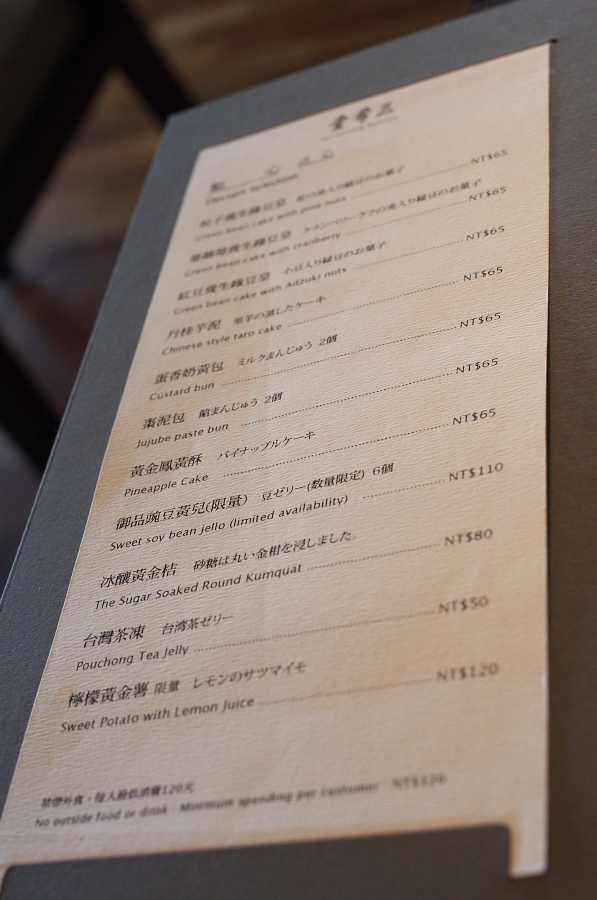 點 心
Dessert Selection
松子幾生綠豆皇 松の実入り緑豆のお菓子
Green bean cake with pine nuts NT$65
蔓越莓幾生綠豆皇 クランベリークラの実入り緑豆のお菓子
Green bean cake with cranberry NT$65
紅豆幾生綠豆皇 小豆入り緑豆のお菓子
Green bean cake with Adzuki nuts NT$65
丹桂芋泥 里芋の蒸したケーキ
Chinese style taro cake NT$65
蛋香奶黃包 ミルクまんじゅう 2個
Custard bun NT$65
棗泥包 餡まんじゅう 2個
Jujube paste bun NT$65
黃金鳳黃酥 パイナップルケーキ
Pineapple Cake NT$65
御品豌豆黃兒(限量) 豆ゼリー(数量限定) 6個
Sweet soy bean jello (limited availability) NT$110
冰釀黃金桔 砂糖は丸い金柑を浸しました。
The Sugar Soaked Round Kumquat NT$80
台灣茶凍 台湾茶ゼリー
Pouchong Tea Jelly NT$50
檸檬黃金薯 限量 レモンのサツマイモ
Sweet Potato with Lemon Juice NT$120
禁帶外食・每人最低消費120元
No outside food or drink Minimum spending per customer NT$120